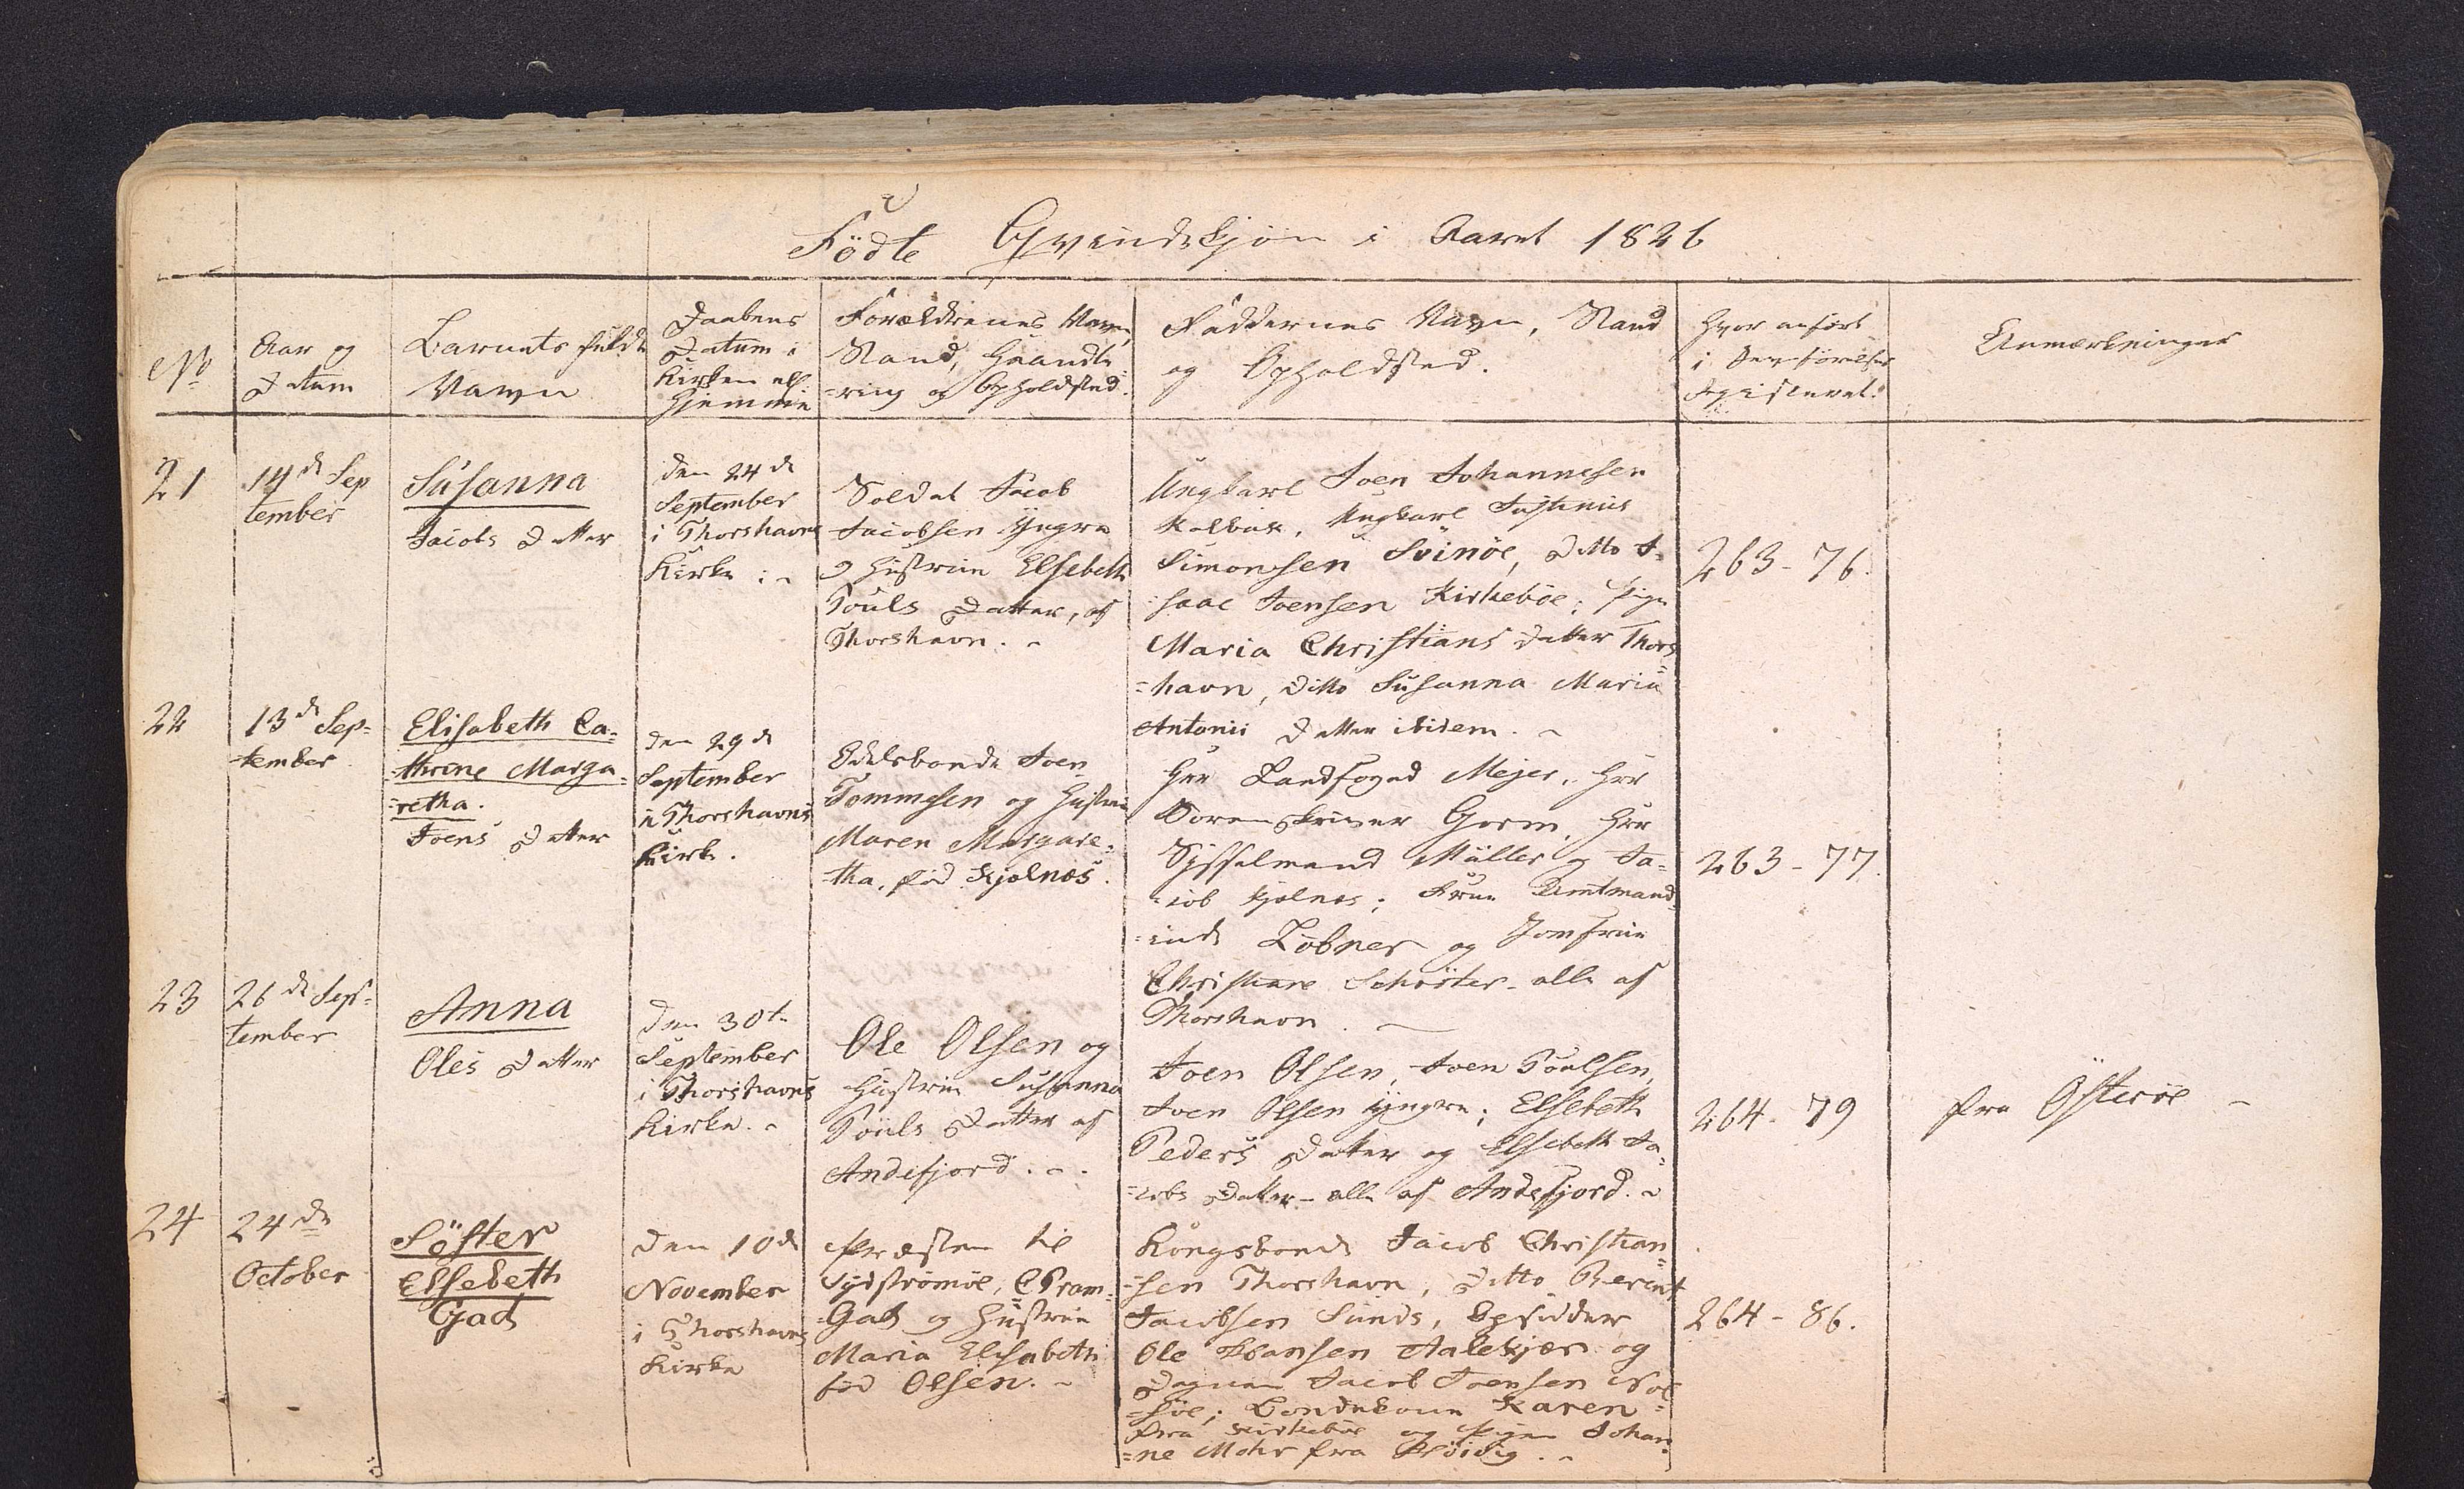 Födte Qvindekjön i Aaret 1826
No
Aar og
Datum
Barnets fulde
Navn
Daabens
Datum i
Kirken ell.
Hjemme
Forældrenes Navn,
Stand, Haandte
=ring og Opholdsted.
Faddernes Navn, Stand
og Opholdsted.
Hvor anfört
i Jevnförelses
Registeret.
Anmærkninger
21
14de Sep
tember
Susanna
Jacobs Datter
den 24de
September
i Thorshavns
Kirke
Soldat Jacob
Jacobsen Yngre
og Hustrue Elsebeth
Pouls Datter, af
Thorshavn.
Ungkarl Joen Johannesen
Kalbak, Ungkarl Justinus
Simonsen Svinöe, Ditto I=
=saac Joensen Kirkeböe; Pige
Maria Christians Datter Thors
=havn, Ditto Susanna Maria
Antonii Datter ibidem.
263-76.
22
13de Sep=
=tember
Elisabeth Ca=
=thrine Marga=
=retha.
Joens Datter
den 29de
September
i Thorshavns
Kirke.
Odelsbonde Joen
Tommesen og Hustrue
Maren Margare=
=tha, föd Kjölnes.
Hrr Landfoged Mejer, Hrr
Sorenskriver Gorm, Hrr
Sysselmand Müller og Ja=
=cob Kjölnes; Frue Amtmand=
=inde Löbner og Jomfrue
Christiane Schröter - alle af
Thorshavn.
263-77.
23
26de Sep=
tember
Anna
Oles Datter
den 30te
September
i Thorshavns
Kirke.
Ole Olsen og
Hustrue Susanna
Pouls Datter af
Andefjord.
Joen Olsen, Joen Poulsen,
Joen Olsen Yngre; Elsebeth
Peders Datter og Elsebeth Ja=
=cobs Datter - alle af Andefjord.
264-79
fra Österöe
24
24de
October
Söster
Elsebeth
Gad
den 10de
November
i Thorshavns
Kirke
Præsten til
Sydströmöe,
Gad og Hustrue
Maria Elisabeth
föd Olsen.
Kongsbonde Jacob Christian=
=sen Thorshavn, Ditto Berent
Jacobsen Sunds, Opsidder
Ole Hansen Aalekjær og
Jacob Joensen Nol=
=söe; Bondekone Karen
fra Kirkeböe og Pigen Johan=
=ne Mohr fra Höivig.
264-86.